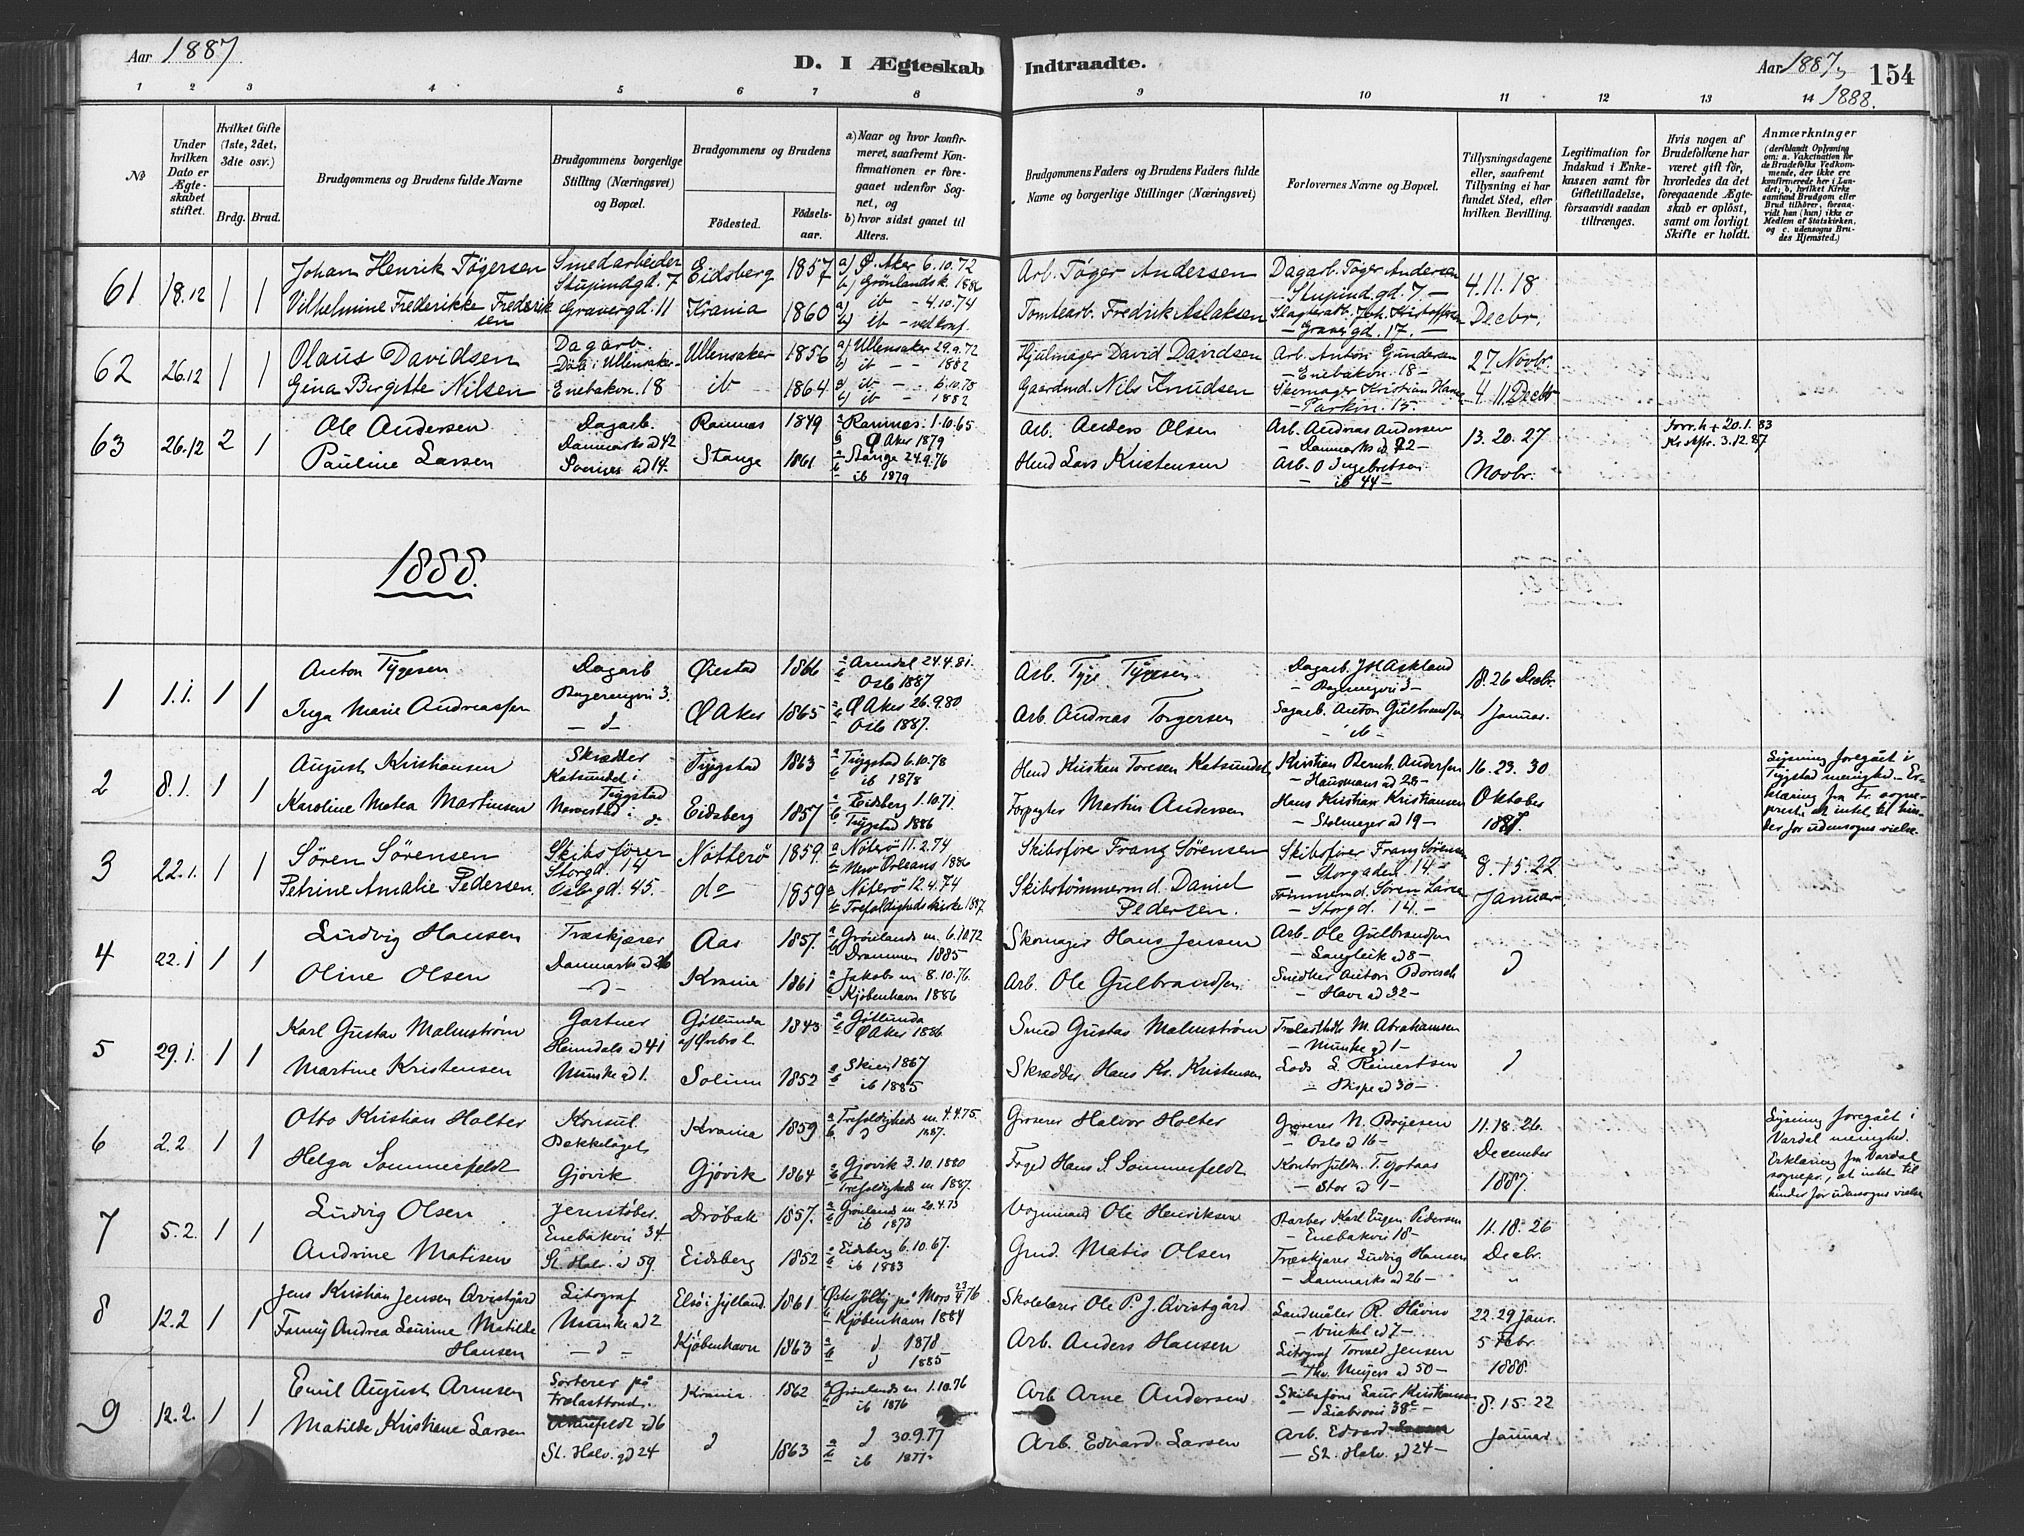 Aar 1887
D. I Ægteskab
Indtraadte.
Aar 1887,
1888.
154
1 2 3 4 5 6 7 8
9 10 11 12 13 14
No
Under hvilken Dato er Ægteskabet stiftet.
Hvilket Gifte (1ste, 2det, 3die osv.)
Brdg. Brud.
Brudgommens og Brudens fulde Navne
Brudgommens borgerlige Stilling (Næringsvei) og Bopæl.
Brudgommens og Brudens
Fødested. Fødselsaar.
a) Naar og hvor konfirmeret, saafremt Konfirmationen er foregaaet udenfor Sognet, og
b) hvor sidst gaaet til Alters.
Brudgommens Faders og Brudens Faders fulde Navne og borgerlige Stillinger (Næringsvei)
Forlovernes Navne og Bopæl.
Tillysningsdagene eller, saafremt Tillysning ei har fundet Sted, efter hvilken Bevilling.
Legitimation for Indskud i Enkekassen samt for Giftetilladelse, forsaavidt saadan tiltrænges.
Hvis nogen af Brudefolkene har været gift før, hvorledes da det foregaaende Ægteskab er opløst, samt om lovligt Skifte er holdt.
Anmærkninger
(deriblandt Oplysning om: a. Vakcination for de Brudefolks Vedkommende, der ikke ere konfirmerede her i Landet; b, hvilket Kirkesamfund Brudgom eller Brud tilhører, forsaavidt han (hun) ikke er Medlem af Statskirken, og c. udensogns Brudes Hjemsted.)
61 18.12 1 1 Johan Henrik Tøgersen Smedarbeider Stupindgd. 7 Eidsberg 1857 a) Ø. Aker 6.10.72 b) Grønlandsk. 1886 Arb. Tøger Andersen Dagarb. Tøger Andersen - Stupind.gd. 7. - 4. 11. 18
Vilhelmine Frederikke Frederiksen Gravergd. 11 Krania 1860 a) ib - 4.10.74 b) ib - ved konf. Tomtearb. Fredrik Aslaksen Slagterarb. Joh. Kristoffersen - Gravergd. 17. - Decbr.
62 26.12 1 1 Olaus Davidsen Dagarb. Døli i Ullensaker Ullensaker 1856 a) Ullensaker 29.9.72 b) ib - - 1882 Hjulmager David Davidsen Arb. Anton Gundersen - Enebakvn. 18 - 27 Novbr
Gina Birgitte Nilsen Enebakvn. 18 ib 1864 a) ib - - 6.10.78 b) ib - 1882 Gaardmd. Nils Knudsen Skomager Kristian Hansen - Parkvn. 15. 4. 11 Decbr
63 26.12 2 1 Ole Andersen Dagarb. Danmarks gd 42 Ramnæs 1849 a Ramnæs. 1.10.65 b Ø Aker 1879 Arb. Anders Olsen Arb. Andreas Andersen - Danmarks gd 22 - 13. 20. 27 Forr. h + 20.1.83
Pauline Larsen Sveriges gd 14. Stange 1861 a Stange 24.9.76 b ib 1879 Hmd Lars Kristensen Arb. O Ingebretsen - ib 44 - Novbr. 3.12.87
1888.
1 1.1. 1 1 Anton Tygesen Dagarb Ryenbergvn 3. Øiestad 1866 a Arendal 24.4.81. b Oslo 1887 Arb. Tyge Tygesen Dagarb. J H Askland 18. 26 Decbr.
Inga Marie Andreassen - d - Ø Aker 1865 a Ø Aker 26.9.80 b Oslo 1887. Arb. Andreas Torgersen Sagarb. Anton Gulbrandsen - ib - 1 Januar.
2 8.1. 1 1 August Kristiansen Skrædder Katsundet i Trygstad Trygstad 1863 a Trygstad 6.10.78 b ib 1878 Hmd Kristian Toresen Katsundet Kristian Bernh. Andersen - Hausmans gd 23 - 16. 23. 30
Karoline Matea Martinsen d Eidsberg 1857 a Eidsberg 1.10.71. b Trygstad 1886 Forpagter Martin Andersen Hans Kristian Kristiansen - Stolmager gd 19 - Oktober 1887.
Lysning foregaat i Trygstad menighed. Erklæring fra Tr. sogneprest at intet til hinder for udensogns vielse.
3 22.1. 1 1 Søren Sørensen Skibsfører Storgd. 14 Nötterö 1859. a Nöterö 11.2.74 b New Orleans 1886 Skibsfører Franz Sørensen Skibsfører Franz Sørensen - Storgaden 14 - 8. 15. 22
Petrine Amalie Pedersen. Oslogd. 45. do 1859 a Nöterö 12.4.74 b Trefoldigheds kirke 1887. Skibstømmermd. Daniel Pedersen. Tømmermd. Søren Larsen - Storgd. 14. - Januar
4 22.1 1 1 Ludvig Hansen Træskjærer Danmarks gd 26 Aas 1857. a Grønlands m. 6.10.72 b Drammen 1885 Skomager Hans Jensen Arb. Ole Gulbrandsen - Langleik gd 8 - d
Oline Olsen - d - Krania 1861 a Jakobs m 8.10.76. b Kjøbenhavn 1886 Arb. Ole Gulbrandsen Snedker Anton - Have gd 32 -
5 29.1. 1 1 Karl Gustav Malmstrøm Gartner Heimdals gd 41 Götlunda af Ørebro l. 1843 a Götlunda b Ø Aker 1886 Smed Gustav Malmstrøm Trælasthdl. M. Abrahamsen - Munke gd 1 - d
Martine Kristensen Munke gd 1. Solum 1852 a Skien 1867 b ib 1885 Skrædder Hans Kr. Kristensen Lods L. Reinertsen - Skippergd 30 -
6 2.2. 1 1 Otto Kristian Holter Konsul Bekkelaget Krania 1859 a Trefoldigheds m. 4.4.75. b d 1887. Grosserer Halvor Holter Grosserer N. Børjesen - Oslo gd 16 - 11. 18. 26.
Helga Sommerfeldt Gjøvik Gjøvik 1864 a Gjøvik 3.10.1880 b Trefoldigheds m 1887. Foged Hans S. Sommerfeldt Kontorfuldm. T. - Stor gd 1 - December 1887.
Lysning foregaat i Vardal menighed. Erklæring fra Vardal sognepr., at intet til hinder for udensogns vielse
7 5.2. 1 1 Ludvig Olsen Jernstøber Enebakvn 34 Drøbak 1857. a Grønlands m 20.4.73 b ib 1873 Vognmand Ole Henriksen Barber Karl Eugen Pedersen - Enebakvn 18 - 11. 18. 26
Andrine Matisen St. Halv. gd 59. Eidsberg 1852 a Eidsberg 6.10.67. b ib 1883 Gmd. Matis Olsen Træskjærer Ludvig Hansen - Danmarks gd 26 - Decbr.
8 12.2 1 1 Jens Kristian Jensen Qvistgård Litograf Munke gd 2 Elsö i Jylland 1861 a Øster Jølby på Mors 23/4 76 b Kjøbenhavn 1884 Skolelærer Ole P. J. Qvistgård Landmåler R. Håvno - Vinkel gd 7 - 22. 29 Janr.
Fanny Andrea Laurine Matilde Hansen - d - Kjøbenhavn 1863 a d 1878 b d 1885 Arb. Anders Hansen Litograf Torvald Jensen - Thv. Meyers gd 50 - 5 Febr. 1888
9 12.2. 1 1 Emil August Arnesen Sorterer på Trælasttomt. gd 6 Krania 1862 a Grønlands m 1.10.76 b ib 1876 Arb. Arne Andersen Skibsfører Laur. Kristiansen - Liabrovn 38c - 8. 15. 22
Matilde Kristiane Larsen St. Halv. gd 24 d 1863 a d 30.9.77 b ib 1877. Arb. Edvard Larsen Arb. Edvard - St. Halv. gd 24 - Januar